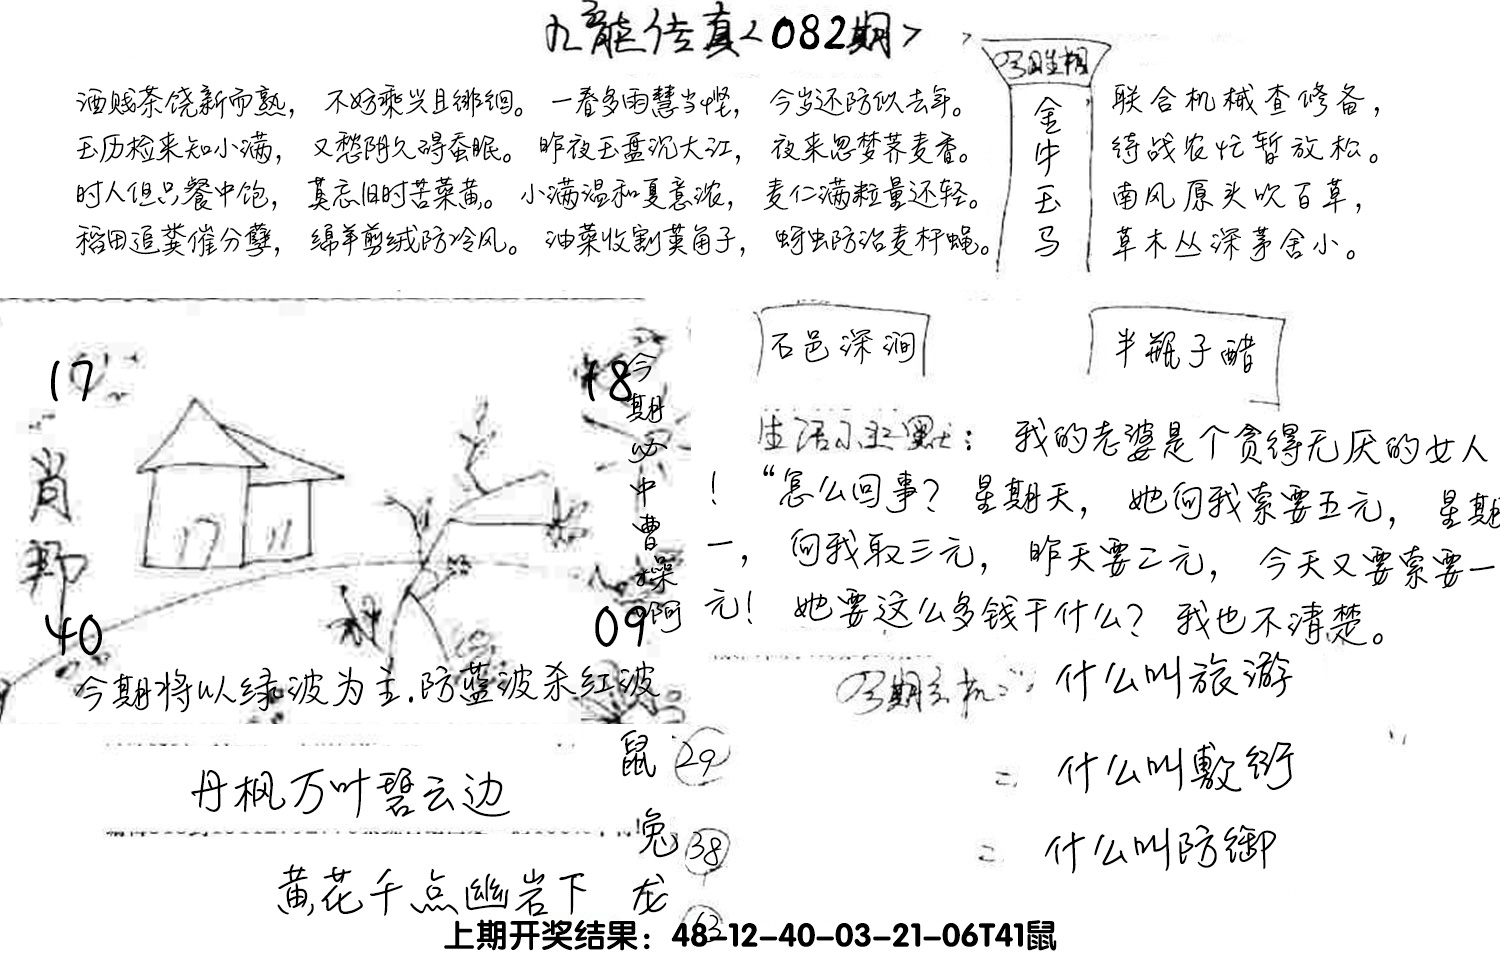 九龍传真<082期>
酒贱茶饶新而熟，不妨乘兴且徘徊。一春多雨慧当悭，今岁还防似去年。
玉历检来知小满，又愁阴久碍蚕眠。昨夜玉盘沉大江，夜来忽梦荞麦香。
时人但只餐中饱，莫忘旧时苦菜黄。小满温和夏意浓，麦仁满粒量还轻。
稻田追粪催分孽，绵羊剪绒防冷风。油菜收割荚角子，蚜虫防治麦杆蝇。
金牛玉马
联合机械查修备，
待战农忙暂放松。
南风原头吹百草，
草木丛深茅舍小。
17
18
肖
40
09
今期必中曹操阿
今期将以绿波为主.防蓝波杀红波
石邑深涧
半瓶子醋
生活小幽默：我的老婆是个贪得无厌的女人
！“怎么回事？星期天，她向我索要五元，星期
一，向我取三元，昨天要二元，今天又要索要一
元！她要这么多钱干什么？我也不清楚。
什么叫旅游
= 什么叫敷衍
= 什么叫防御
丹枫万叶碧云边
黄花千点幽岩下
鼠 29
兔 38
龙 63
上期开奖结果：48-12-40-03-21-06T41鼠